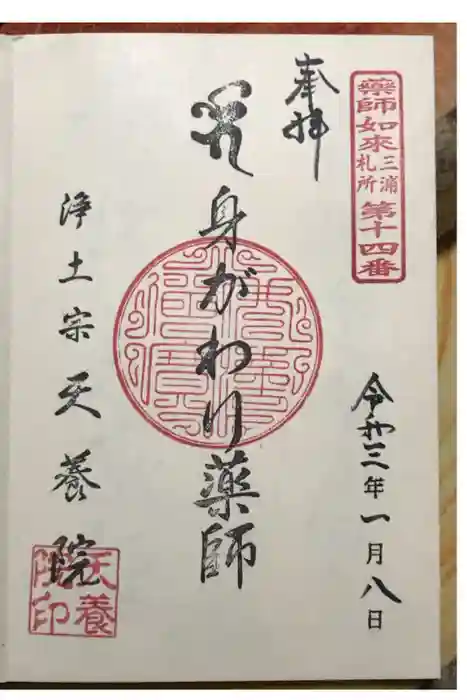 薬師如來
三浦
札所
第十四番
奉拝
令和三年一月八日
身がわり薬師
浄土宗天養院
天養
院印